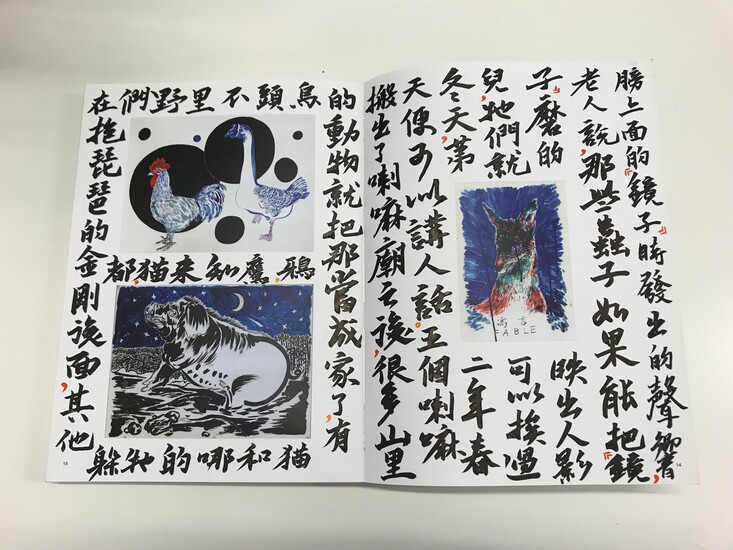 膀上面的『鏡子』時發出的聲響，
老人說，那些蟲子如果能把『鏡
子』磨的映出人影
兒，牠們就可以挨過
冬天，第二年春
天便可以講人話。五個喇嘛
搬出了喇嘛廟之後，很多山里
寓言
FABLE
14
的動物就把那當成家了，有
烏鴉，猫
頭鷹和
不知哪
里來的
野猫，牠
們都躲
在抱琵琶的金剛後面，其他